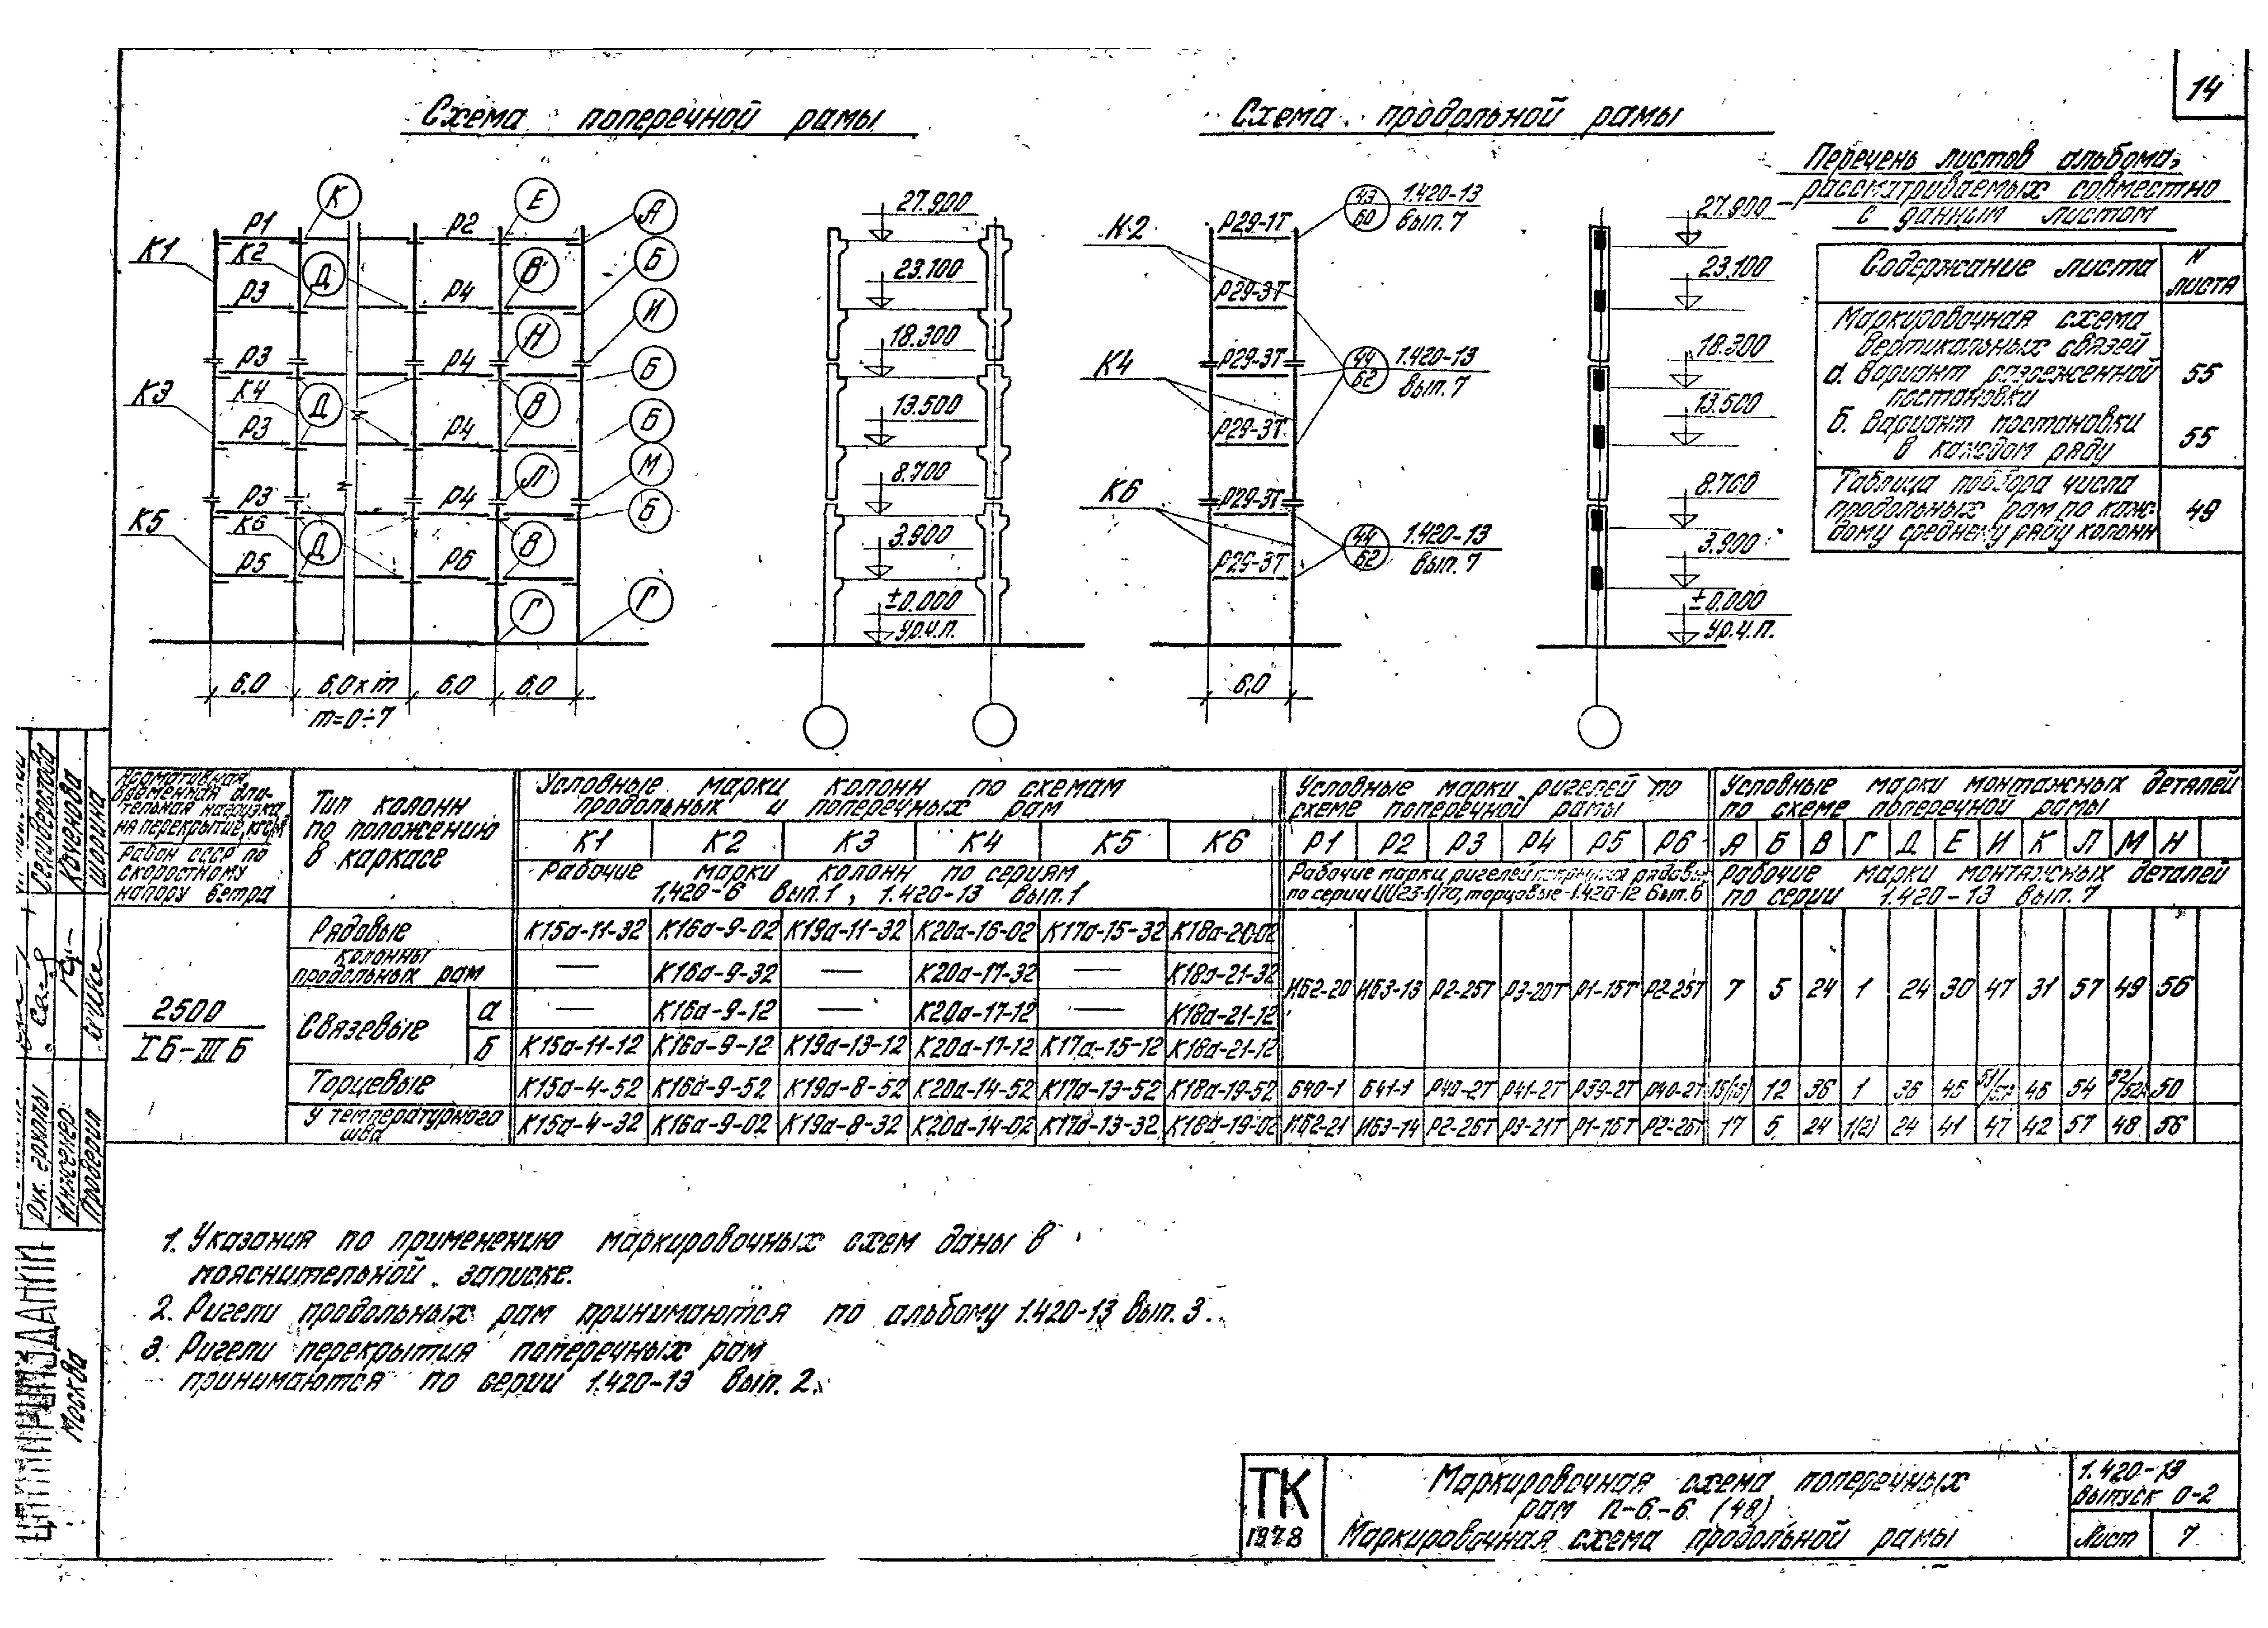 14
Схема поперечной рамы
Схема продольной рамы
Перечень листов альбома,
рассматриваемых совместно
с данным листом
Содержание листа
N листа
Маркировочная схема
вертикальных связей
а. Вариант разреженной
постановки
55
б. Вариант постановки
в каждом ряду
55
Таблица подбора числа
продольных рам по каж-
дому среднему ряду колонн
49
К Е А
Р1 Р2
К1 К2 Д В Б
Р3 Р4
И
Н
Р3 Р4
Б
К3 К4 Д В
Б
Р3 Р4
Л М
Р3 Р4
Б
К5 К6 Д В
Р5 Р6
Г Г
6.0 6.0×m 6.0 6.0
m=0÷7
27.900
23.100
18.300
13.500
8.700
3.900
±0.000
Ур.ч.п.
К2 Р29-1Т 43/60 1.420-13
вып. 7
Р29-3Т
К4 Р29-3Т 44/62 1.420-13
вып. 7
Р29-3Т
К6 Р29-3Т
44/62 1.420-13
Р29-3Т вып. 7
6,0
27.900
23.100
18.300
13.500
8.700
3.900
±0.000
Ур.ч.п.
Нормативная
временная дли-
тельная нагрузка
на перекрытие, кгс/м²
Район СССР по
скоростному
напору ветра
Тип колонн
по положению
в каркасе
Условные марки колонн по схемам
продольных и поперечных рам
К1 К2 К3 К4 К5 К6
Рабочие марки колонн по сериям
1.420-6 вып.1, 1.420-13 вып.1
Условные марки ригелей по
схеме поперечной рамы
Р1 Р2 Р3 Р4 Р5 Р6
Рабочие марки ригелей рядовые
по серии ИИ23-1/70, торцовые-1.420-12 вып.6
Условные марки монтажных деталей
по схеме поперечной рамы
А Б В Г Д Е И К Л М Н
Рабочие марки монтажных деталей
по серии 1.420-13 вып.7
2500
IБ-IIIБ
Рядовые К15а-11-32 К16а-9-02 К19а-11-32 К20а-16-02 К17а-15-32 К18а-20-02
Колонны
продольных рам — К16а-9-32 — К20а-17-32 — К18а-21-32
ИБ2-20 ИБ3-13 Р2-25Т Р3-20Т Р1-15Т Р2-25Т 7 5 24 1 24 30 47 31 57 49 56
Связевые
а — К16а-9-12 — К20а-17-12 — К18а-21-12
б К15а-11-12 К16а-9-12 К19а-13-12 К20а-17-12 К17а-15-12 К18а-21-12
Торцевые К15а-4-52 К16а-9-52 К19а-8-52 К20а-14-52 К17а-13-52 К18а-19-52 Б40-1 Б41-1 Р40-2Т Р41-2Т Р39-2Т Р40-2Т 12 36 1 36 45 46 54 50
У температурного
шва К15а-4-32 К16а-9-02 К19а-8-32 К20а-14-02 К17а-13-32 К18а-19-02 ИБ2-21 ИБ3-14 Р2-26Т Р3-21Т Р1-16Т Р2-26Т 17 5 24 1(2) 24 41 47 42 57 48 56
1. Указания по применению маркировочных схем даны в
пояснительной записке.
2. Ригели продольных рам принимаются по альбому 1.420-13 вып. 3.
3. Ригели перекрытия поперечных рам
принимаются по серии 1.420-13 вып. 2.
ТК
1978
Маркировочная схема поперечных
рам п-6-6 (48)
Маркировочная схема продольной рамы
1.420-13
выпуск 0-2
Лист 7
Рук. группы Селиверстова
Инженер Коченова
Проверил Шорина
ЦНИИПРОМЗДАНИЙ
Москва